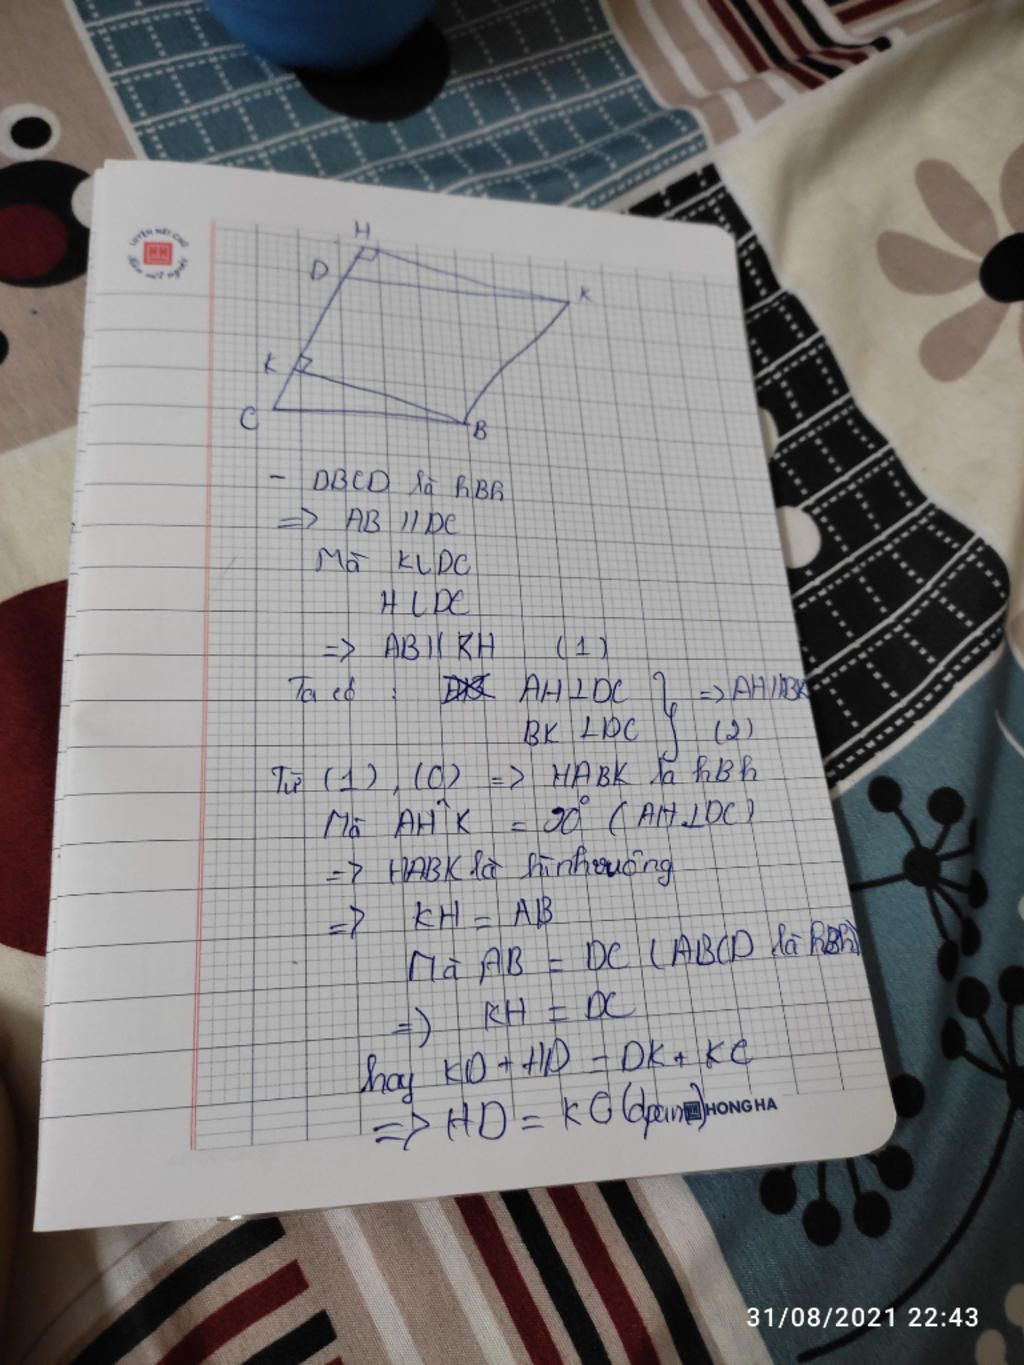 LUYỆN NÉT CHỮ
H
D
K
K
C
B
- DBCD là hBh
=> AB // DC
Mà K∈DC
H∈DC
=> AB // KH (1)
Ta có : AH⊥DC } => AH//BK
BK ⊥DC (2)
Từ (1), (2) => HABK là hBh
Mà AHK = 90° (AH⊥DC)
=> HABK là hình vuông
=> KH = AB
Mà AB = DC (ABCD là hBh)
=> KH = DC
hay KD + HD = DK + KC
=> HD = KC (đpcm)
HONG HA
31/08/2021 22:43